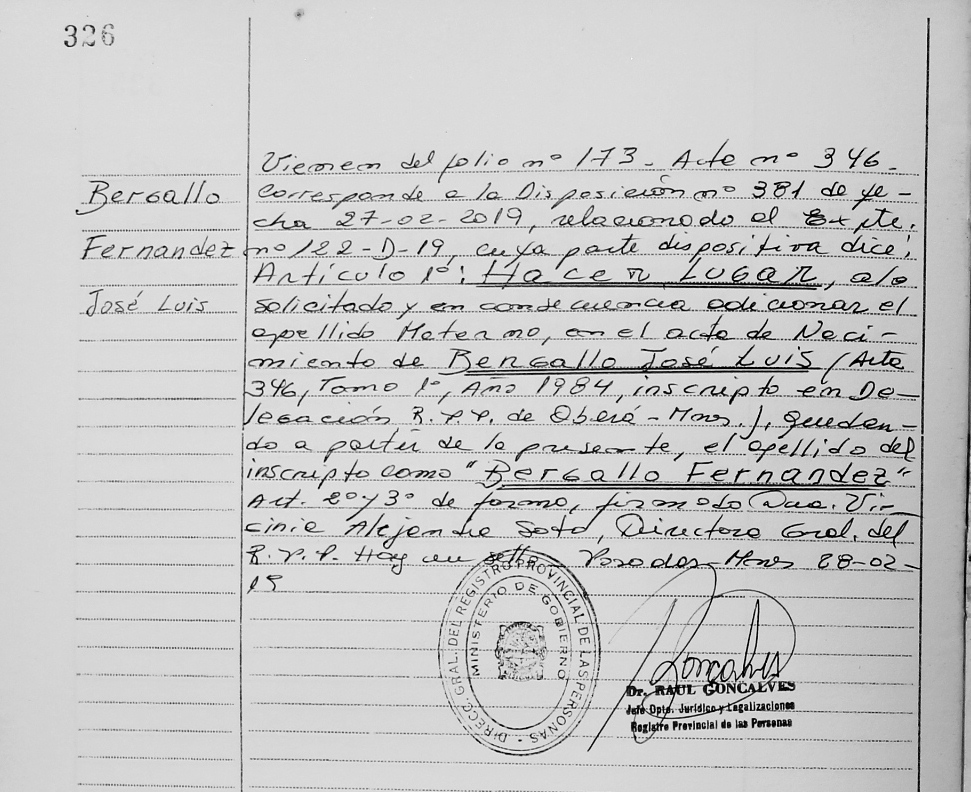 326
Vienen del folio nº 173 - Acta nº 346 -
Bergallo
Fernandez
José Luis
Corresponde a la Disposición nº 381 de fe-
cha 27-02-2019, relacionado al Expte.
nº 122-D-19, cuya parte dispositiva dice:
Artículo 1º: Hacer Lugar, a lo
solicitado y en consecuencia adicionar el
apellido Materno, en el acta de Naci-
miento de Bergallo José Luis (Acta
346, Tomo 1º, Año 1984, inscripto en De-
legación R.P.P. de Oberá - Mnes.), quedan-
do a partir de la presente, el apellido del
inscripto como "Bergallo Fernandez"
Art. 2º y 3º de forma, firmado Dra. Vir-
ginia Alejandra Soto, Directora Gral. del
R.P.P. Hay un sello Posadas-Mnes 28-02-
19
DIRECC. GRAL. DEL REGISTRO PROVINCIAL DE LAS PERSONAS -
MINISTERIO DE GOBIERNO
Goncalves
Dr. RAUL GONCALVES
Jefe Dpto. Jurídico y Legalizaciones
Registro Provincial de las Personas